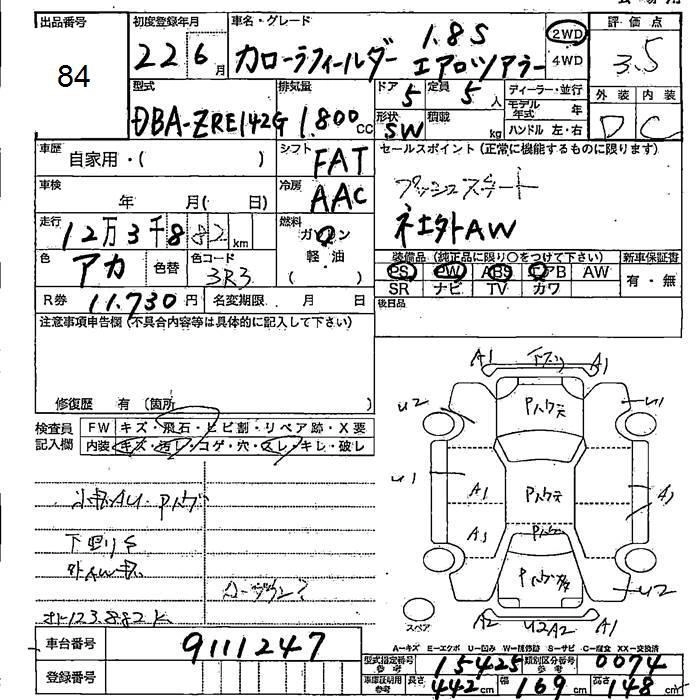 出品番号 初度登録年月 車名・グレード 評価点
84
22 6月 カローラフィールダー 1.8S エアロツアラー 2WD 4WD 3.5
型式 排気量 ドア 5 定員 5人 ディーラー・並行 外装 内装
DBA-ZRE142G 1.800cc 形状 SW 積載 kg モデル年式 年 ハンドル 左・右 D C
車歴 自家用・( ) シフト FAT セールスポイント (正常に機能するものに限ります)
車検 年 月( 日) 冷房 AAC プッシュスタート
走行 12万3千882km 燃料 ガソリン 軽・油 ( ) 社外AW
色 アカ 色替 色コード 3R3 装備品 (純正品に限り○をつけて下さい) 新車保証書
PS PW ABS エアB AW 有・無
R券 11.730円 名変期限 月 日 SR ナビ TV カワ
注意事項申告欄 (不具合内容等は具体的に記入して下さい) 後日品
修復歴 有 (箇所 )
検査員記入欄 FW キズ・飛石・ヒビ割・リペア跡・X要
内装 キズ・汚レ・コゲ・穴・スレ・キレ・破レ
A1 A1
U2 Pハクカ U1
U1 A1 Pハクカ A1
A1
小キズAU・Pハクカ
下回りS
外AWキズ
オド123.882K
スペア A2 U2A2 A2 U2
A-キズ E-エクボ U-凹み W-補修跡 S-サビ C-腐食 XX-交換済
車台番号 9111247 型式指定番号 参考 15425 類別区分番号 参考 0074
登録番号 車庫証明用 参考 長さ 442cm 幅 169cm 高さ 148cm